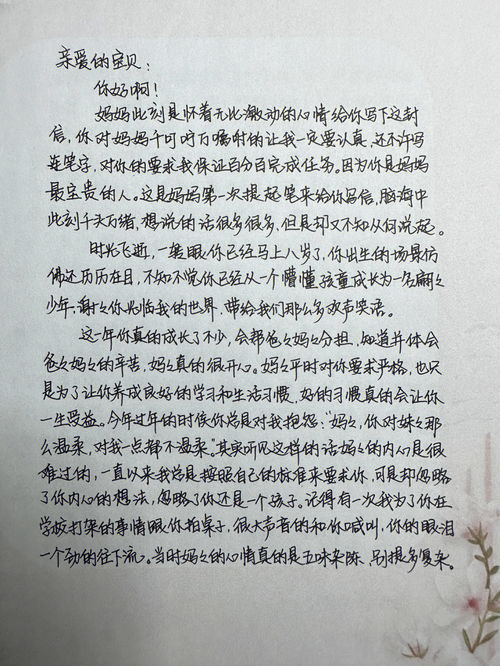 亲爱的宝贝：
你好啊！
妈妈此刻是怀着无比激动的心情给你写下这封
信，你对妈妈千叮咛万嘱咐的让我一定要认真，还不许写
连笔字，对你的要求我保证百分百完成任务。因为你是妈妈
最宝贵的人。这是妈妈第一次提起笔来给你写信，脑海中
此刻千头万绪，想说的话很多很多，但是却又不知从何说起。
时光飞逝，一转眼你已经马上八岁了，你出生的场景仿
佛还历历在目，不知不觉你已经从一个懵懂孩童成长为一名翩々
少年，谢々你光临我的世界，带给我们那么多欢声笑语。
这一年你真的成长了不少，会帮爸々妈々分担，知道并体会
爸々妈々的辛苦，妈々真的很开心。妈々平时对你要求严格，也只
是为了让你养成良好的学习和生活习惯，好的习惯真的会让你
一生受益。今年过年的时候你总是对我抱怨："妈々，你对妹々那
么温柔，对我一点都不温柔。"其实听见这样的话妈々的内心是很
难过的，一直以来我总是按照自己的标准来要求你，可是却忽略
了你内心的想法，忽略了你还是一个孩子。记得有一次我为了你在
学校打架的事情跟你拍桌子，很大声音的和你喊叫，你的眼泪
一个劲的往下流。当时妈々的心情真的是五味杂陈，别提多复杂。